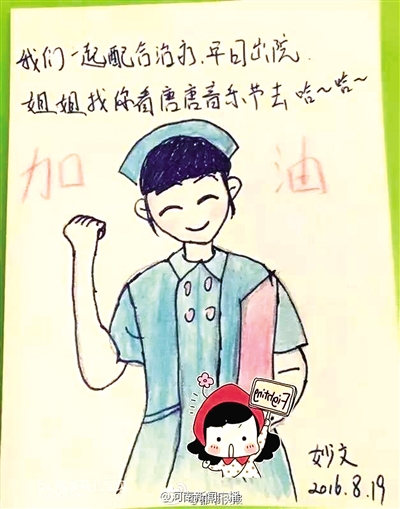 我们一起配合治疗.早日出院.
姐姐找你看唐唐音乐节去哈~哈~
加 油
Fighting
妙文
2016.8.19
@河南新闻广播